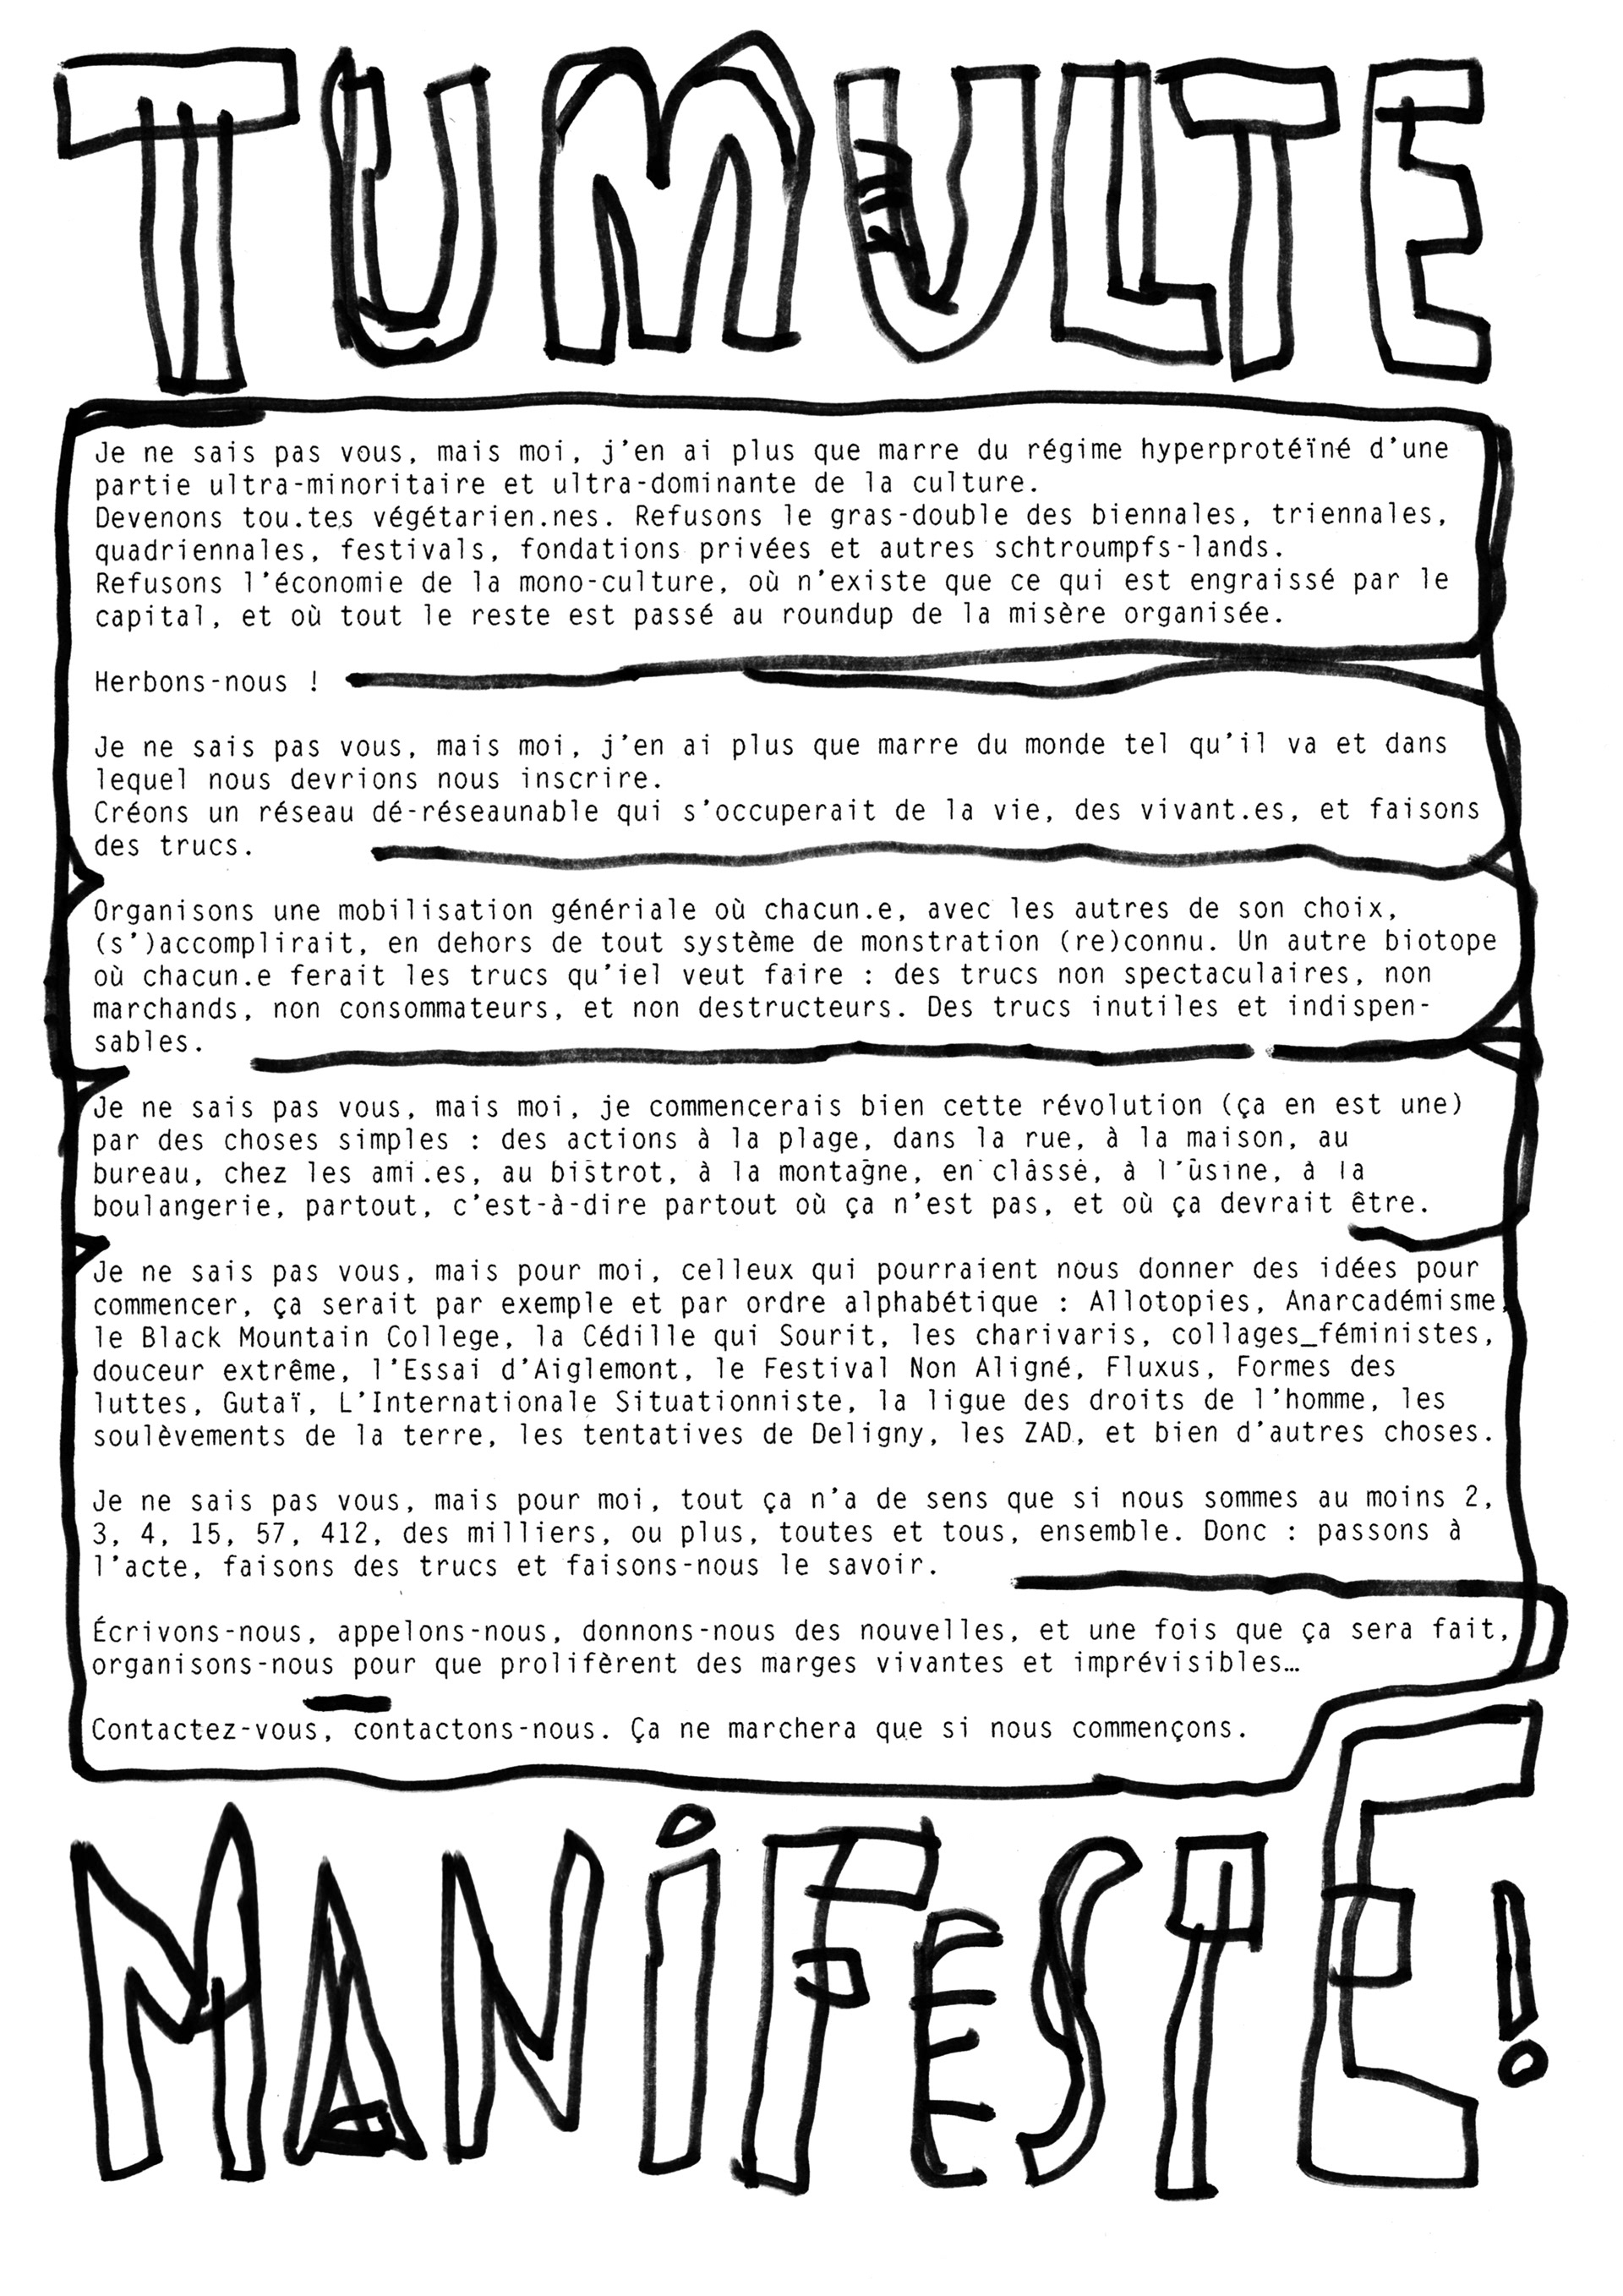 TUMULTE
Je ne sais pas vous, mais moi, j'en ai plus que marre du régime hyperprotéïné d'une
partie ultra-minoritaire et ultra-dominante de la culture.
Devenons tou.tes végétarien.nes. Refusons le gras-double des biennales, triennales,
quadriennales, festivals, fondations privées et autres schtroumpfs-lands.
Refusons l'économie de la mono-culture, où n'existe que ce qui est engraissé par le
capital, et où tout le reste est passé au roundup de la misère organisée.
Herbons-nous !
Je ne sais pas vous, mais moi, j'en ai plus que marre du monde tel qu'il va et dans
lequel nous devrions nous inscrire.
Créons un réseau dé-réseaunable qui s'occuperait de la vie, des vivant.es, et faisons
des trucs.
Organisons une mobilisation génériale où chacun.e, avec les autres de son choix,
(s')accomplirait, en dehors de tout système de monstration (re)connu. Un autre biotope
où chacun.e ferait les trucs qu'iel veut faire : des trucs non spectaculaires, non
marchands, non consommateurs, et non destructeurs. Des trucs inutiles et indispen-
sables.
Je ne sais pas vous, mais moi, je commencerais bien cette révolution (ça en est une)
par des choses simples : des actions à la plage, dans la rue, à la maison, au
bureau, chez les ami.es, au bistrot, à la montagne, en classe, à l'usine, à la
boulangerie, partout, c'est-à-dire partout où ça n'est pas, et où ça devrait être.
Je ne sais pas vous, mais pour moi, celleux qui pourraient nous donner des idées pour
commencer, ça serait par exemple et par ordre alphabétique : Allotopies, Anarcadémisme,
le Black Mountain College, la Cédille qui Sourit, les charivaris, collages_féministes,
douceur extrême, l'Essai d'Aiglemont, le Festival Non Aligné, Fluxus, Formes des
luttes, Gutaï, L'Internationale Situationniste, la ligue des droits de l'homme, les
soulèvements de la terre, les tentatives de Deligny, les ZAD, et bien d'autres choses.
Je ne sais pas vous, mais pour moi, tout ça n'a de sens que si nous sommes au moins 2,
3, 4, 15, 57, 412, des milliers, ou plus, toutes et tous, ensemble. Donc : passons à
l'acte, faisons des trucs et faisons-nous le savoir.
Écrivons-nous, appelons-nous, donnons-nous des nouvelles, et une fois que ça sera fait,
organisons-nous pour que prolifèrent des marges vivantes et imprévisibles…
Contactez-vous, contactons-nous. Ça ne marchera que si nous commençons.
MANiFESTE!